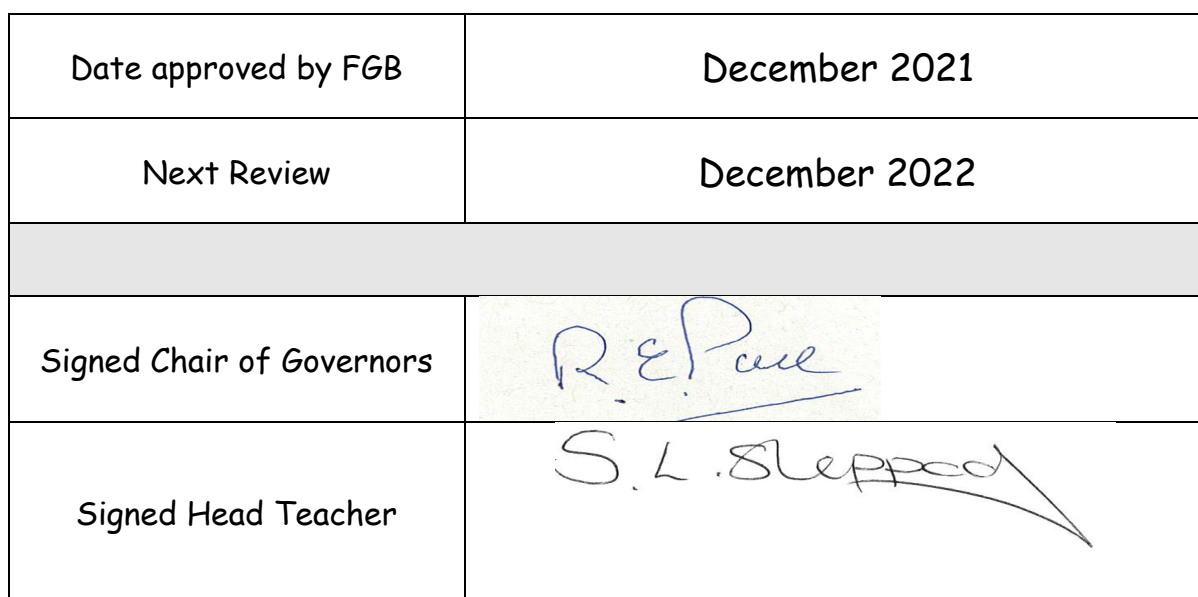 Date approved by FGB
December 2021
Next Review
December 2022
Signed Chair of Governors
R. E.
Signed Head Teacher
S. L.